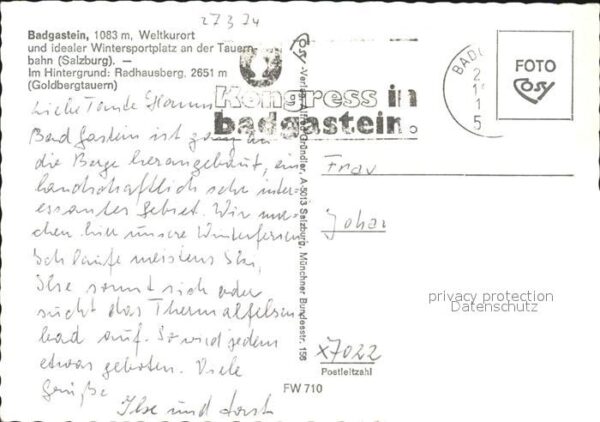 27.3.74
Badgastein, 1083 m, Weltkurort
und idealer Wintersportplatz an der Tauern-
bahn (Salzburg). —
Im Hintergrund: Radhausberg, 2651 m
(Goldbergtauern)
Kongress in
badgastein
BAD
FOTO
Cosy
Cosy-Verlag Alfred Gründler, A-5013 Salzburg, Münchner Bundesstr. 156
Liebe Tante Hanna
Bad Gastein ist ganz an
die Berge herangebaut, ein
landschaftlich sehr inter-
essantes Gebiet. Wir ma-
chen hier unsere Winterferien
Ich laufe meistens Ski,
Ilse sonnt sich oder
sucht das Thermalfelsen
bad auf. So wird jedem
etwas geboten. Viele
Grüße
Ilse und Horst
Frau
Johan
x7022
Postleitzahl
FW 710
privacy protection
Datenschutz